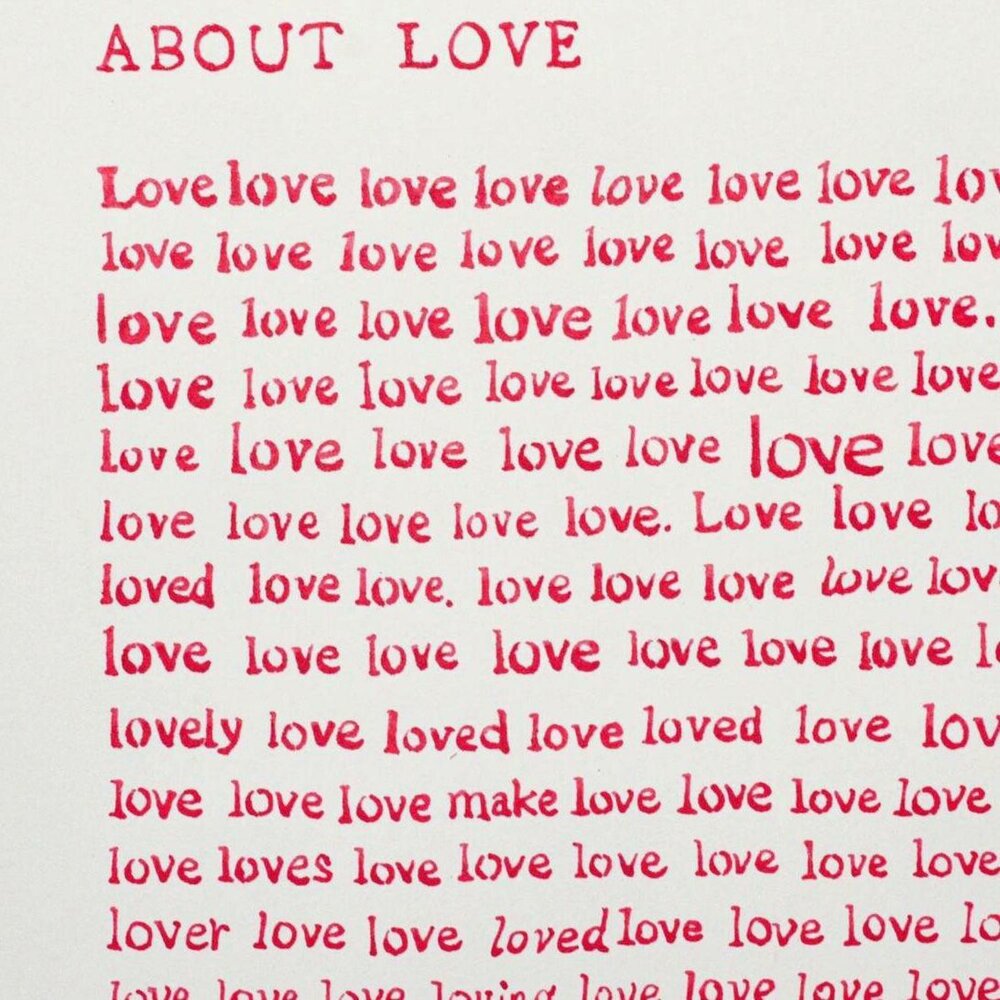 ABOUT LOVE
Love love love love love love love
love love love love love love love
love love love love love love love.
love love love love love love love love
love love love love love love love
love love love love love. Love love
loved love love. love love love love
love love love love love love love
lovely love loved love loved love
love love love make love love love love
love loves love love love love love love
lover love love loved love love love
love love love loving love love love love